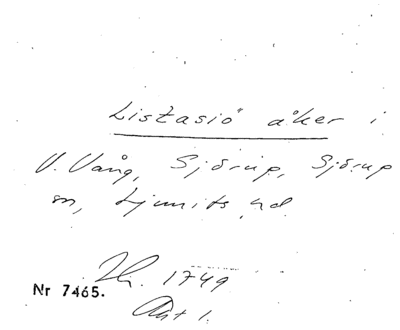 Listasiö åker i
V. Vång, Sjörup, Sjörup
sn, Ljunits hd.
Hr. 1749
Nr 7465.
Akt 1.